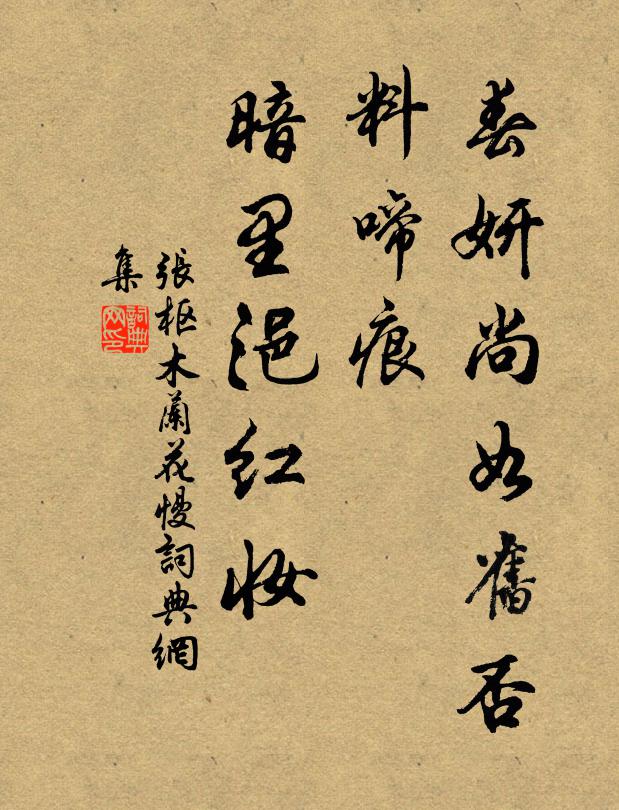 春妍尚如舊否
料啼痕
暗里浥红妆
張枢木蘭花慢詞典網
集
詞典网印